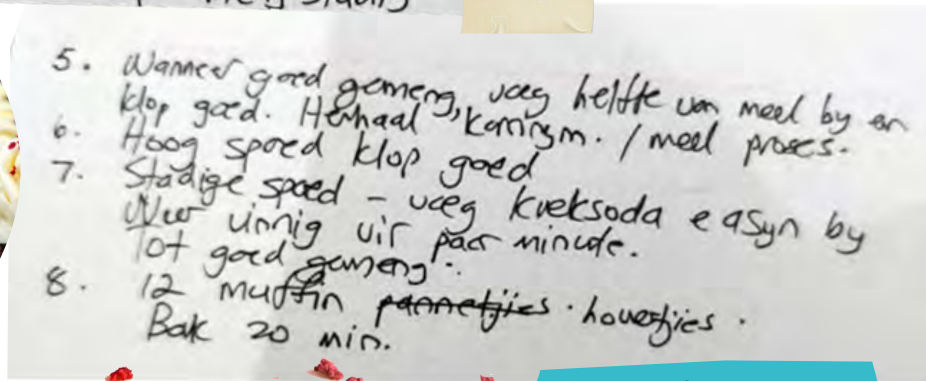 5. Wanneer goed gemeng, voeg helfte van meel by en
klop goed. Herhaal karringm. / meel proses.
6. Hoog spoed klop goed
7. Stadige spoed - voeg koeksoda e asyn by
Weer vinnig vir paar minute.
Tot goed gemeng.
8. 12 muffin pannetjies. houertjies.
Bak 20 min.